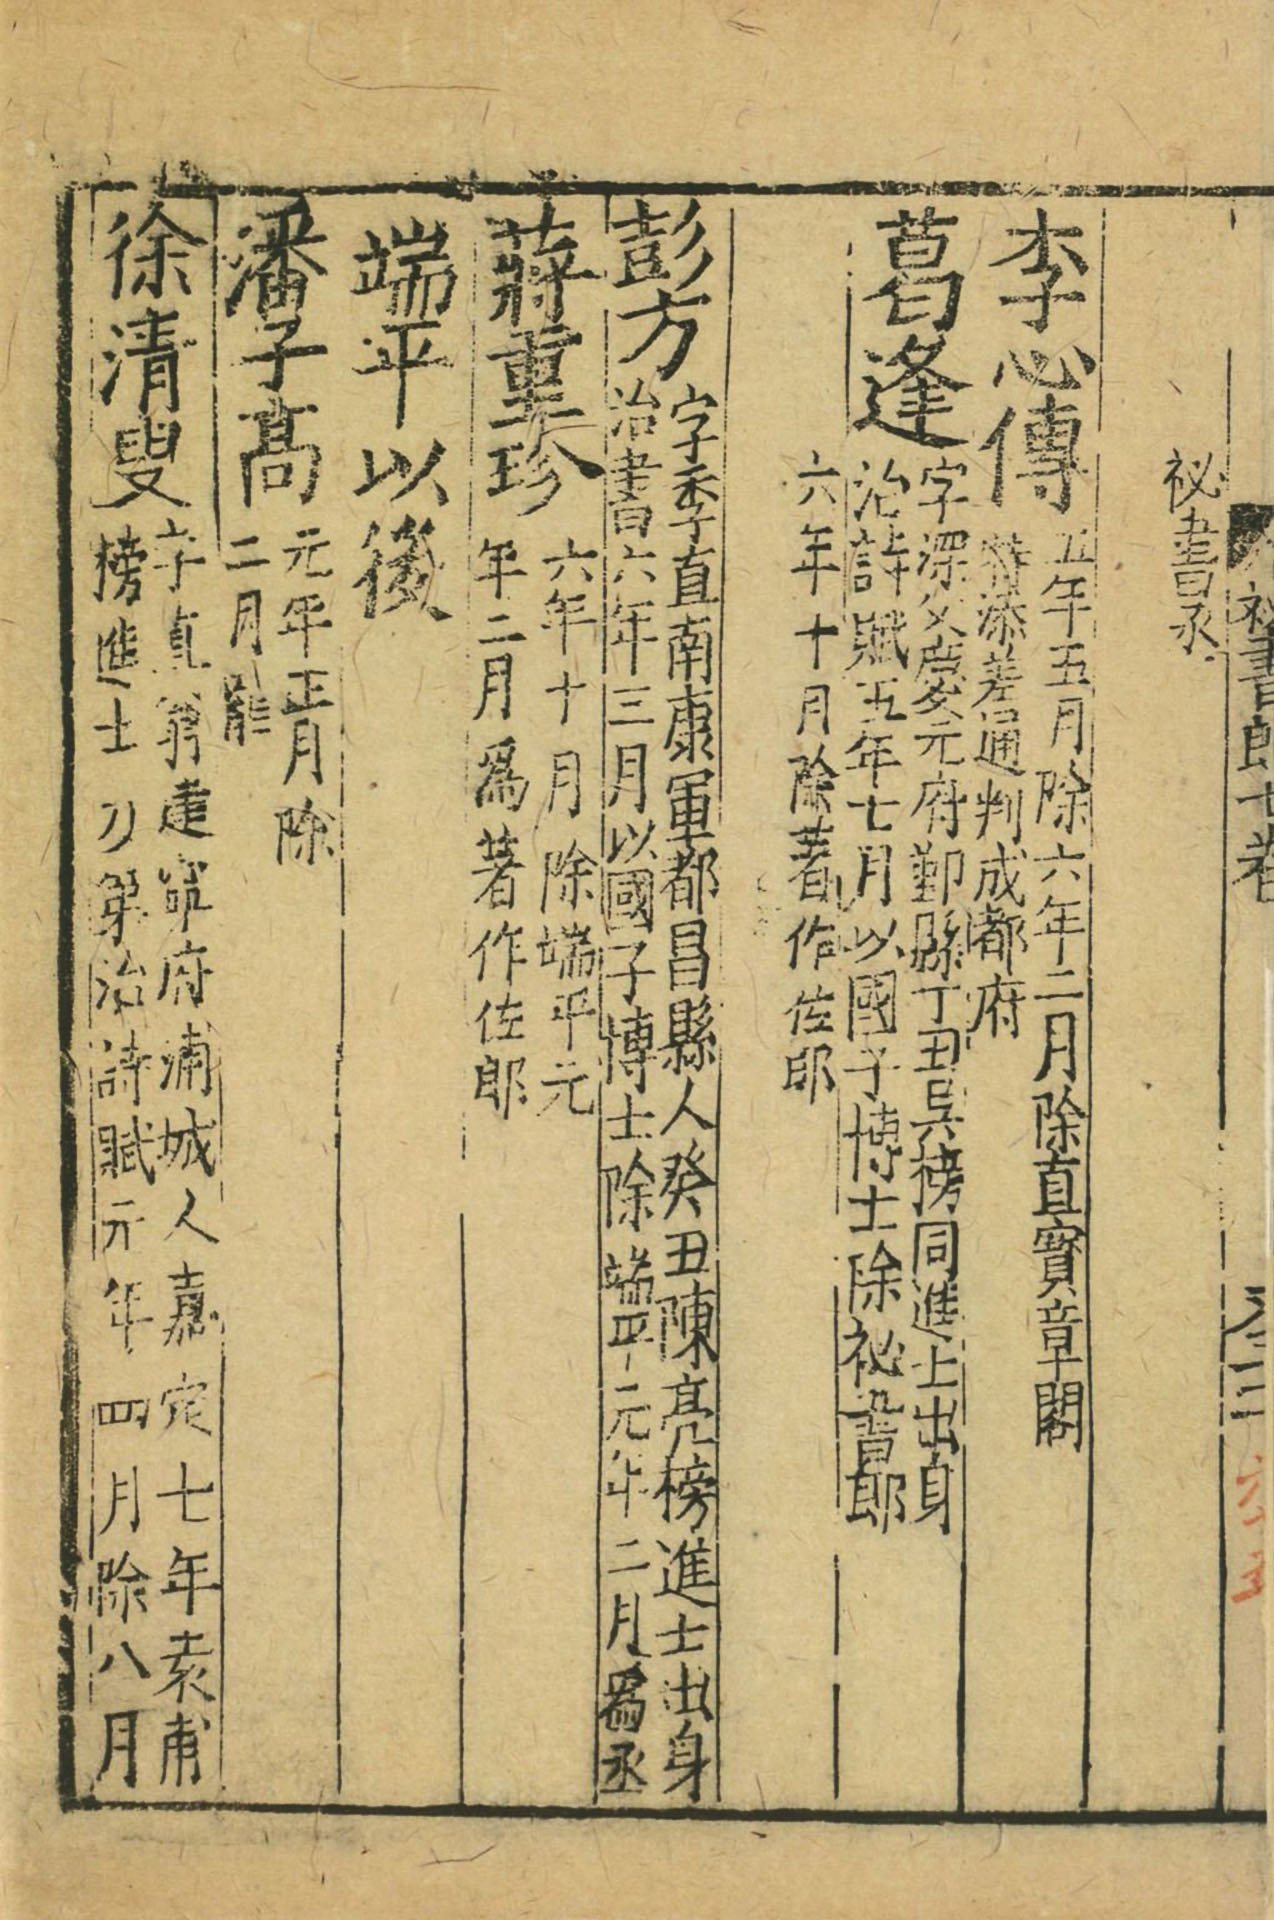 秘書郎七卷
秘書丞
李心傳
五年五月除六年二月除直寶章閣
特添差通判成都府
葛逢
字深父慶元府鄞縣丁丑吳榜同進士出身
治詩賦五年七月以國子博士除秘書郎
六年十月除著作佐郎
彭方
字季直南康軍都昌縣人癸丑陳亮榜進士出身
治書六年三月以國子博士除端平元年二月爲丞
蔣重珍
六年十月除端平元
年二月爲著作佐郎
端平以後
潘子高
元年正月除
二月罷
徐清叟
字直翁建寧府浦城人嘉定七年袁甫
榜進士及第治詩賦元年四月除八月